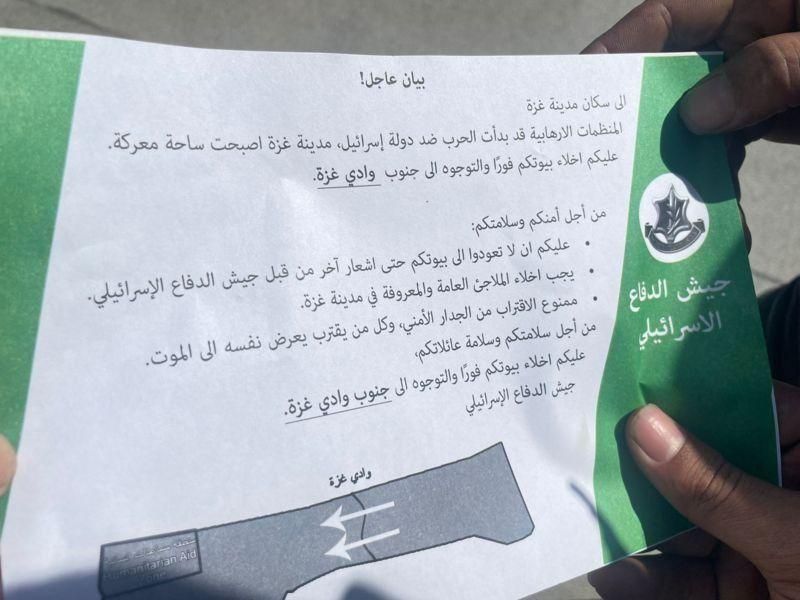 بيان عاجل!
الى سكان مدينة غزة
المنظمات الارهابية قد بدأت الحرب ضد دولة إسرائيل، مدينة غزة اصبحت ساحة معركة.
عليكم اخلاء بيوتكم فورًا والتوجوه الى جنوب وادي غزة.
من أجل أمنكم وسلامتكم:
• عليكم ان لا تعودوا الى بيوتكم حتى اشعار آخر من قبل جيش الدفاع الإسرائيلي.
• يجب اخلاء الملاجئ العامة والمعروفة في مدينة غزة.
• ممنوع الاقتراب من الجدار الأمني، وكل من يقترب يعرض نفسه الى الموت.
من أجل سلامتكم وسلامة عائلاتكم،
عليكم اخلاء بيوتكم فورًا والتوجوه الى جنوب وادي غزة.
جيش الدفاع الإسرائيلي
جيش الدفاع
الاسرائيلي
وادي غزة
Humanitarian Aid
Zone